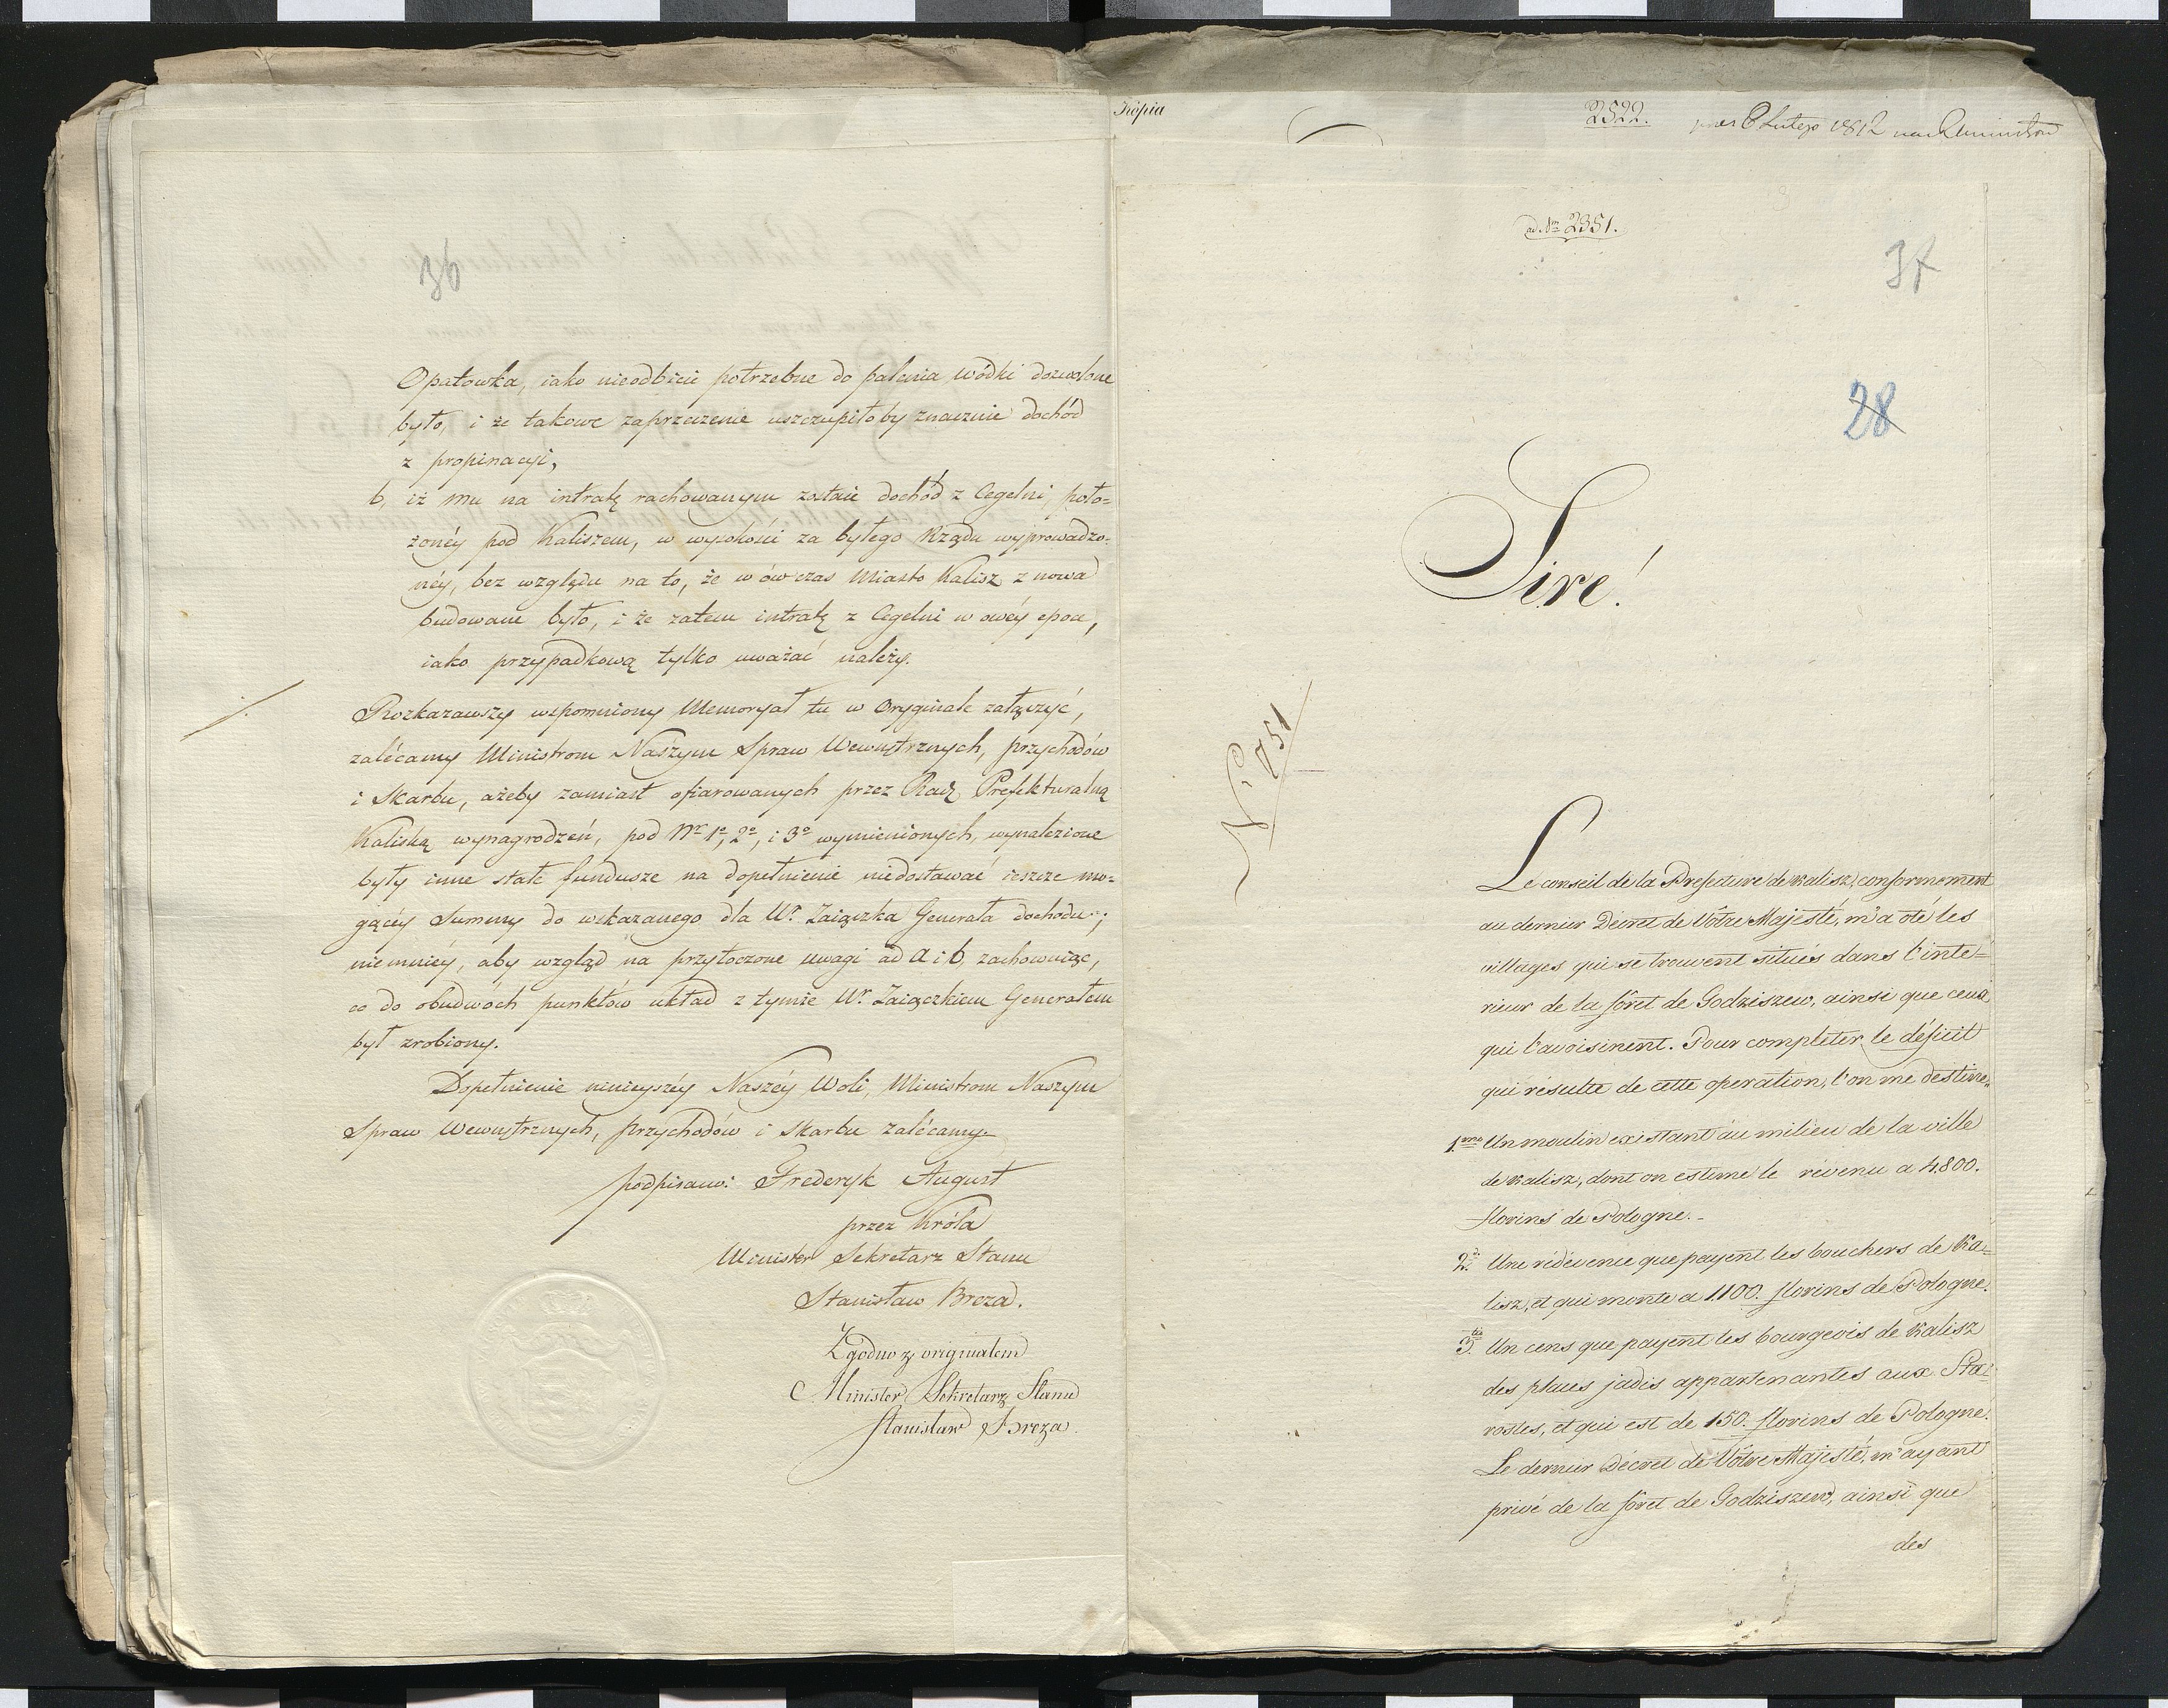 36
Opatowka, iako nieodbicie potrzebne do palenia wódki dozwolone
było, i że takowe zaprzeczenie uszczupiłoby znacznie dochód
z propinacyi,
b, iż mu na intratę rachowanym zostaie dochód z Cegelni poło=
żonéy pod Kaliszem, w wysokości za byłego Rządu wyprowadzo=
néy, bez względu na to, że w ówczas Miasto Kalisz z nowa
budowane było, i że zatem intratę z Cegelni w owéy epoce,
iako przypadkową tylko uważać należy.
Rozkazawszy wspomniony Memoryał tu w Oryginale załączyć,
zalécamy Ministrom Naszym Spraw Wewnętrznych, Przychodów
i Skarbu, ażeby zamiast ofiarowanych przez Radę Prefekturalną
Kaliską wynagrodzeń, pod Nr 1o, 2o, i 3o wymienionych, wynalezione
były inne stałe fundusze na dopełnienie niedostawać ieszcze mo=
gącéy Summy do wskazanego dla Ur. Zaiączka Generała dochodu;
niemniéy, aby wzgląd na przytoczone uwagi ad a i b, zachowuiąc,
co do obudwóch punktów układ z tymże Ur. Zaiączkiem Generałem
był zrobiony.
Dopełnienie ninieyszéy Naszéy Woli, Ministrom Naszym
Spraw Wewnętrznych, Przychodów i Skarbu zalécamy.
podpisano: Fryderyk August
przez Króla
Minister Sekretarz Stanu
Stanisław Breza.
Zgodno z originałem
Minister Sekretarz Stanu
Stanisław Breza.
Kópia
2522.
8 Lutego 1812
ad Nrm 2351.
37
28
Sire!
N: 751
Le conseil de la Prefecture de Kalisz, conformement
au dernier Décret de Vôtre Majesté, m'a oté les
villages qui se trouvent situés dans l'inté=
rieur de la fôret de Godziszew, ainsi que ceux
qui l'avoisinent. Pour completer le déficit
qui résulte de cette operation, l'on me destine,
1mo Un moulin existant au milieu de la ville
de Kalisz, dont on estime le révenu a 4.800.
florins de Pologne.-
2do Une rédévence que payent les bouchers de Ka=
lisz, et qui monte a 1100. florins de Pologne.
3tio Un cens que payent les bourgeois de Kalisz
des places jadis appartenantes aux Sta=
rostes, et qui est de 150. florins de Pologne.
Le dernier Décret de Vôtre Majesté, m'ayant
privé de la fôret de Godziszew, ainsi que
des